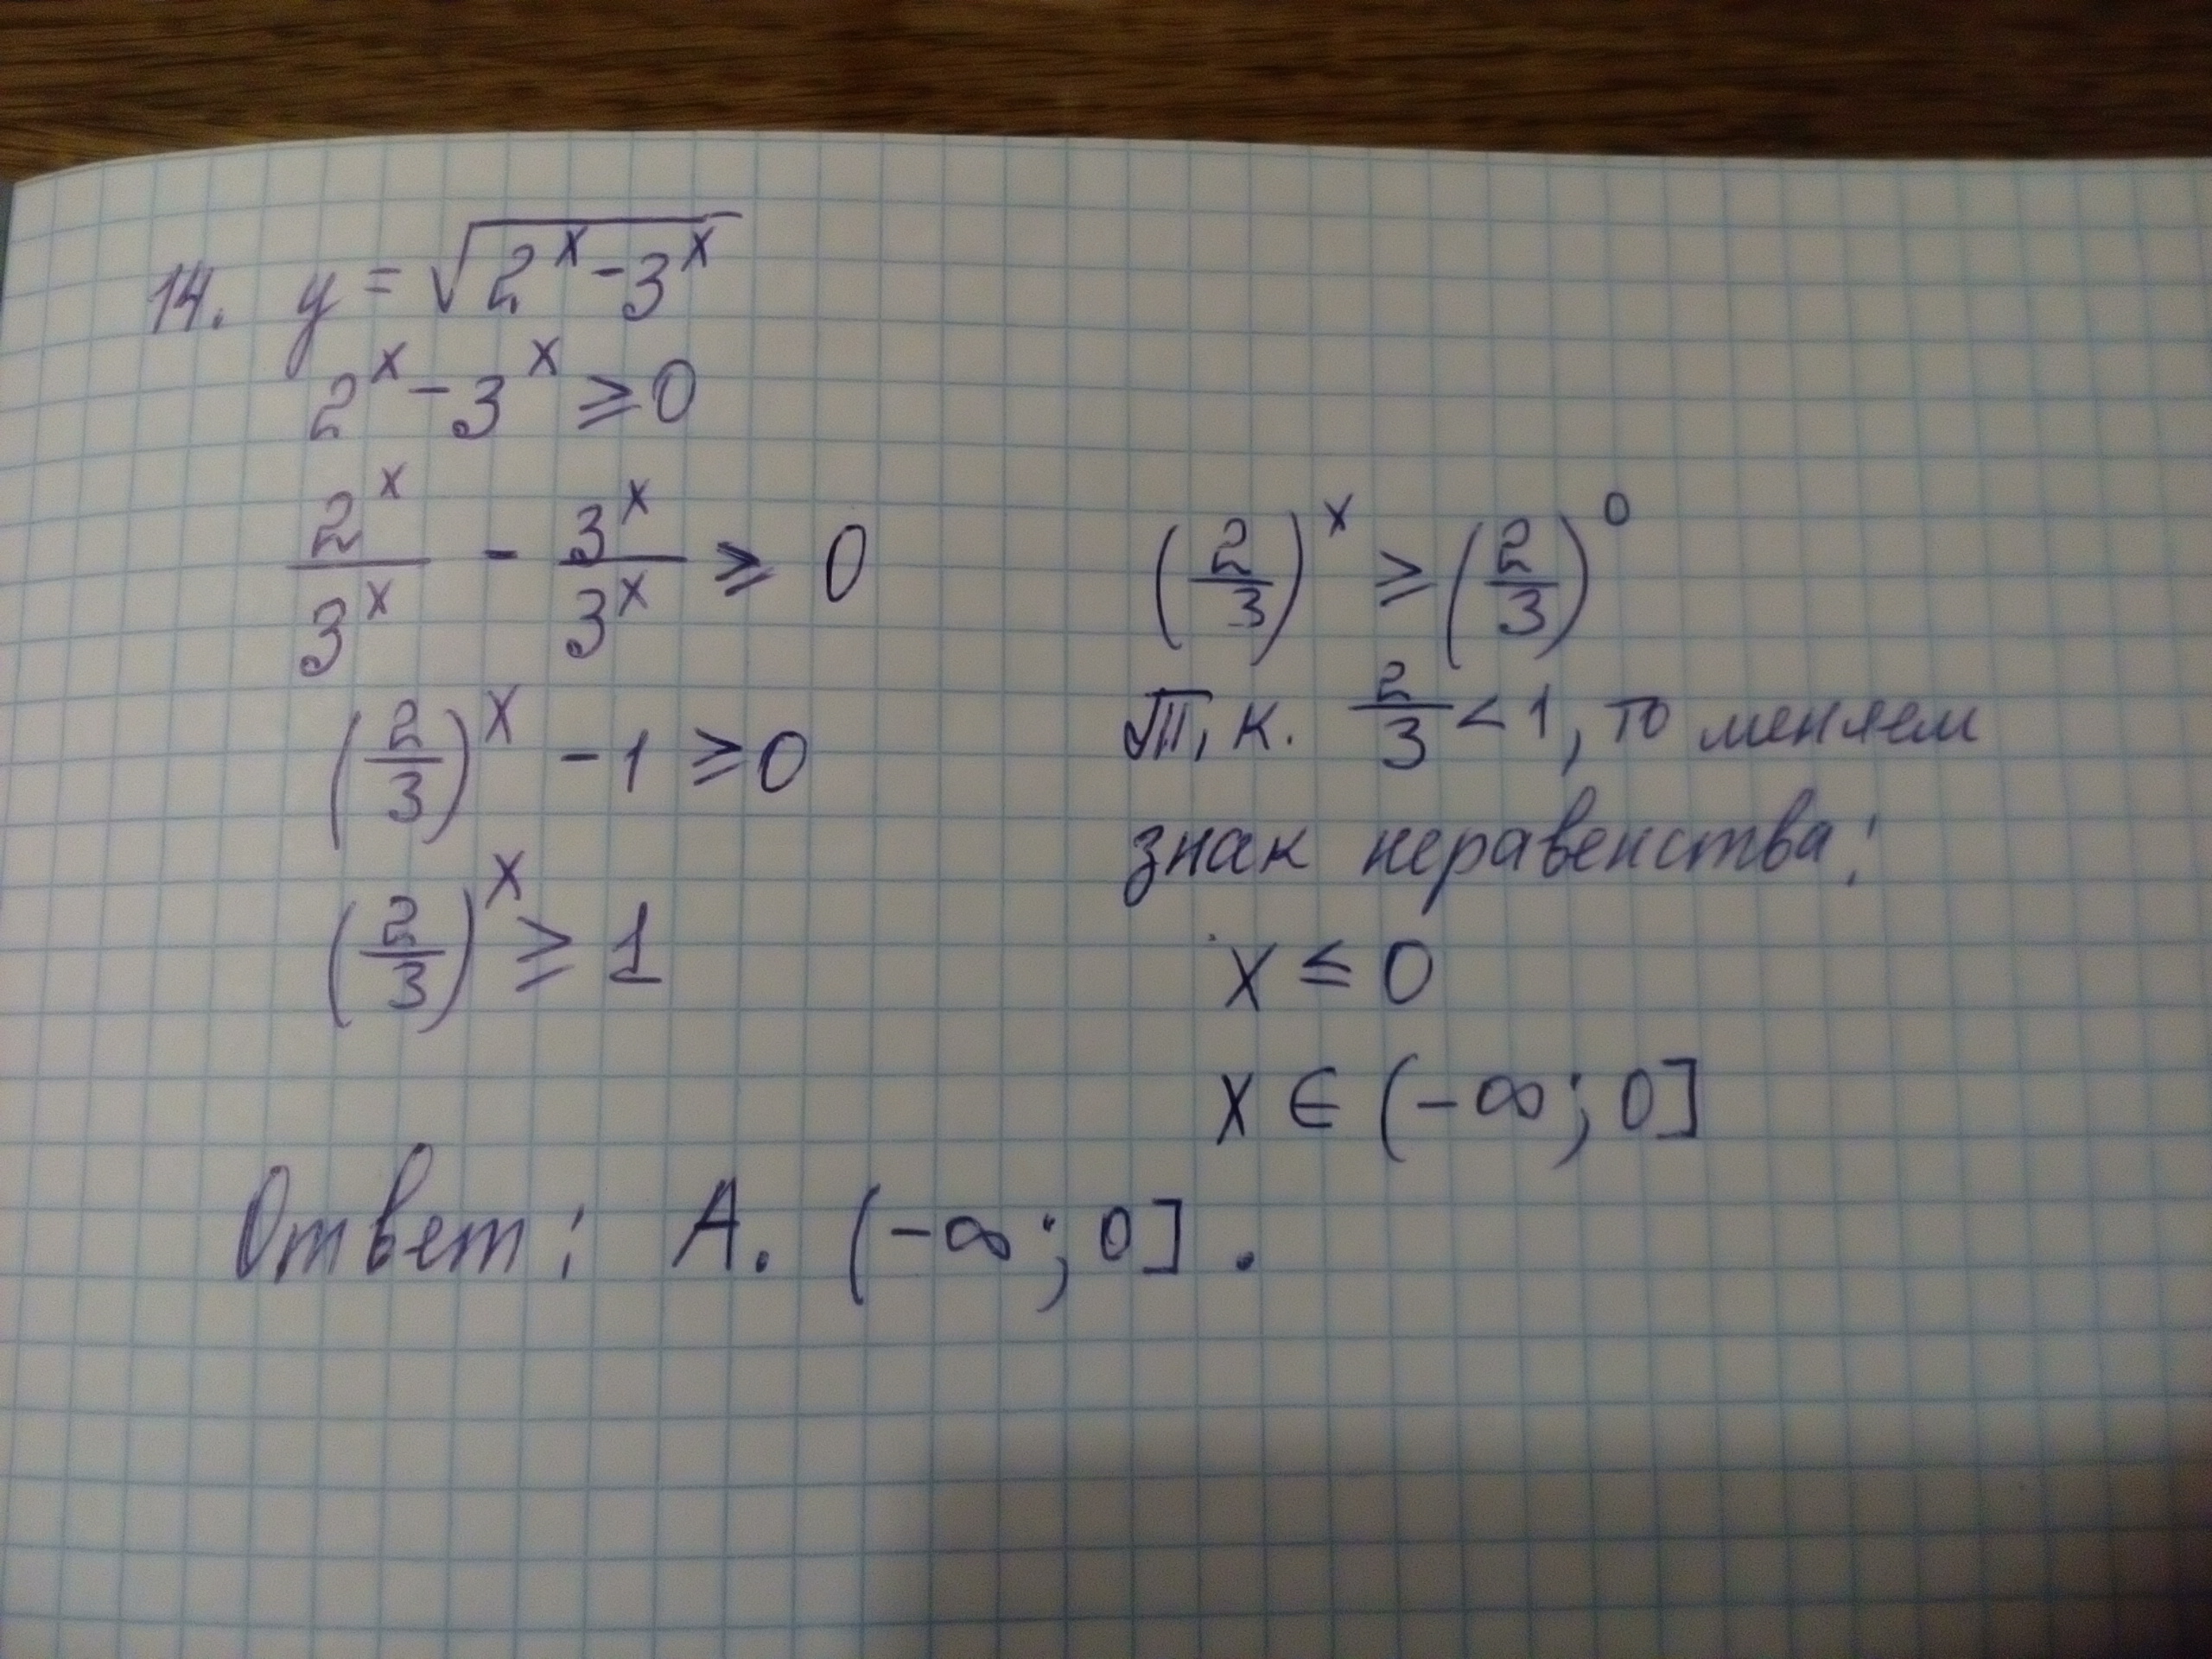 14. y = √(2^x - 3^x)
2^x - 3^x ⩾ 0
2^x/3^x - 3^x/3^x ⩾ 0
(2/3)^x - 1 ⩾ 0
(2/3)^x ⩾ 1
(2/3)^x ⩾ (2/3)^0
Т, к. 2/3 < 1, то меняем
знак неравенства:
x ⩽ 0
x ∈ (-∞; 0]
Ответ: А. (-∞; 0].